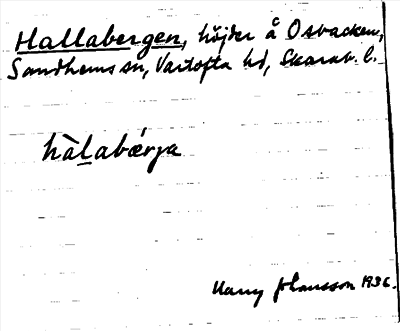 Hallabergen, höjder å Osbacken,
Sandhems sn, Vartofta hd, Skarab. l.
hàlabǽrja
Harry Johansson 1936.